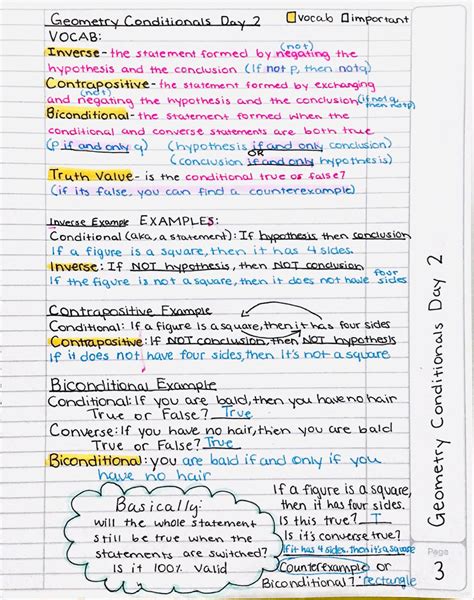 Geometry Conditionals Day 2
vocab important
VOCAB:
(not)
Inverse - the statement formed by negating the
hypothesis and the conclusion (If not p, then not q)
Contrapositive - the statement formed by exchanging
(not)
and negating the hypothesis and the conclusion (if not q, then not p)
Biconditional - the statement formed when the
conditional and converse statements are both true
(p if and only q) (hypothesis if and only conclusion)
OR
(conclusion if and only hypothesis)
Truth Value - is the conditional true or false?
(if its false, you can find a counterexample)
Inverse Example EXAMPLES:
Conditional (aka, a statement): If hypothesis then conclusion
If a figure is a square, then it has 4 sides.
Inverse: If NOT hypothesis, then NOT conclusion
If the figure is not a square, then it does not have four sides
Contrapositive Example
Conditional: If a figure is a square, then it has four sides
Contrapositive: If NOT conclusion, then NOT hypothesis
If it does not have four sides, then it's not a square
Biconditional Example
Conditional: If you are bald, then you have no hair
True or False? True
Converse: If you have no hair, then you are bald
True or False? True
Biconditional: you are bald if and only if you
have no hair
Basically:
will the whole statement
still be true when the
statements are switched?
Is it 100% valid
If a figure is a square,
then it has four sides.
Is this true? T
Is it's converse true?
If it has 4 sides, then it's a square
Counterexample or
Biconditional? rectangle
Geometry Conditionals Day 2
Page
3